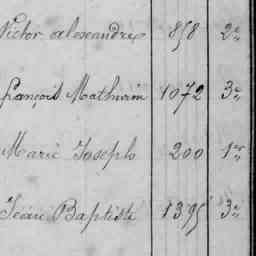 Victor alexandre 858 2e
françois Mathurin 1072 3e
Marie Joseph 200 1er
Jean Baptiste 1395 3e